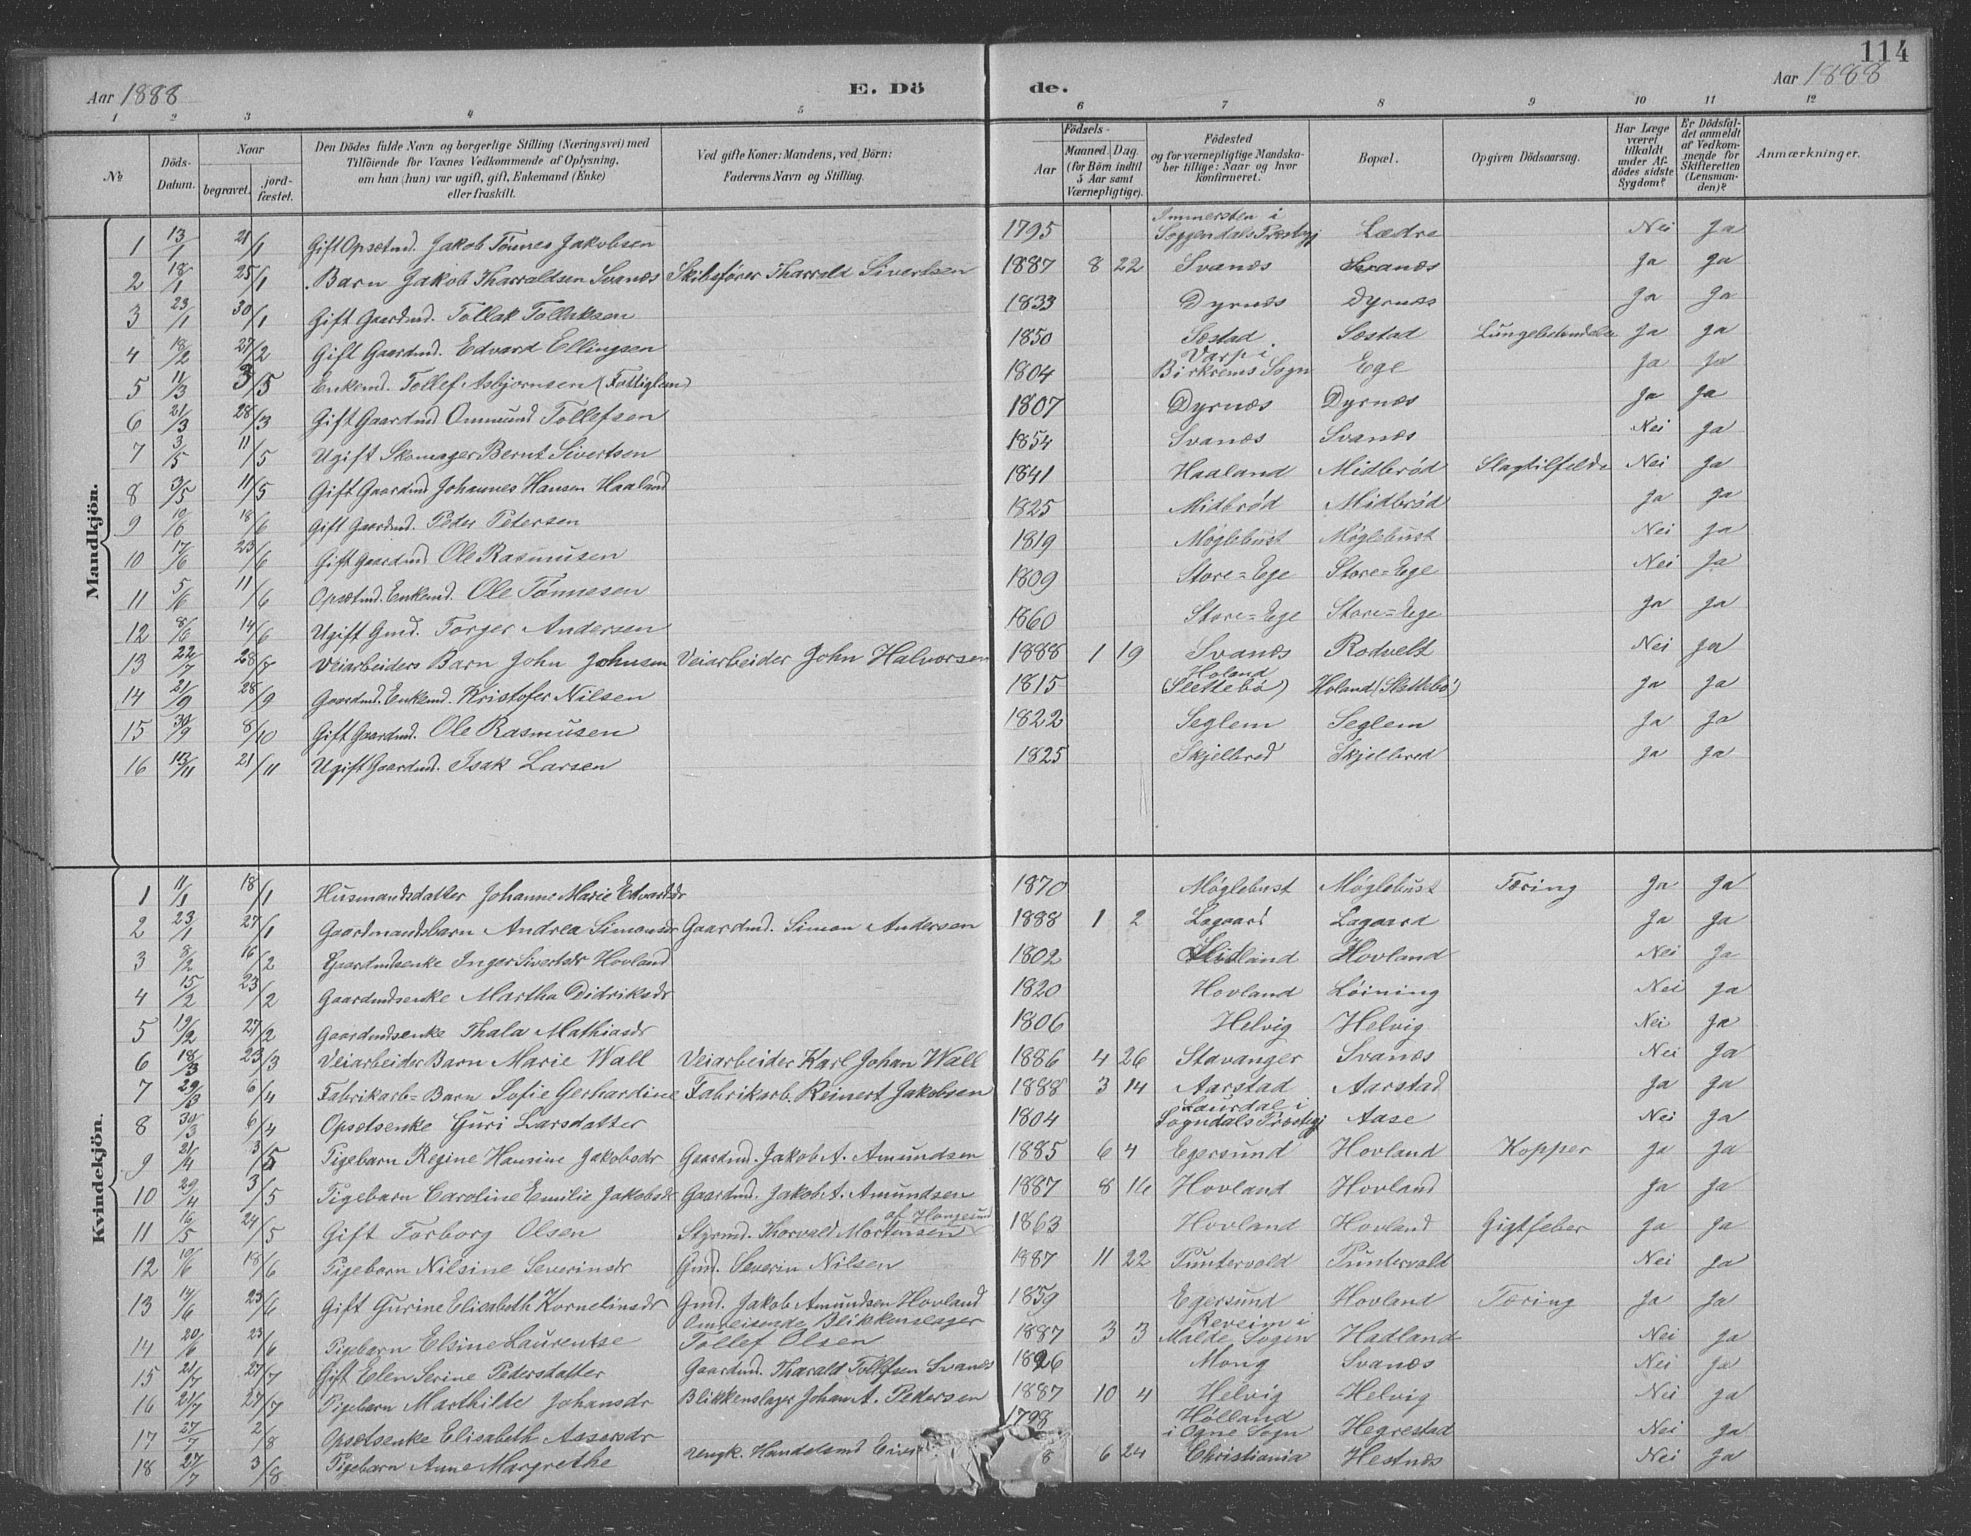 114
Aar 1888 E. Dö de. Aar 1888
1 2 3 4 5 6 7 8 9 10 11 12
No Döds-Datum. Naar begravet. jord-fæstet. Den Dödes fulde Navn og borgerlige Stilling (Næringsvei) med Tilföiende for Voxnes Vedkommende af Oplysning, om han (hun) var ugift, gift, Enkemand (Enke) eller fraskilt. Ved gifte Koner: Mandens, ved Börn: Faderens Navn og Stilling. Födsels- Aar Maaned. Dag. (for Börn indtil 5 Aar samt Værnepligtige). Födested og for værnepligtige Mandskaber tillige: Naar og hvor konfirmeret. Bopæl. Opgiven Dödsaarsag. Har Læge været tilkaldt under Afdödes sidste Sygdom? Er Dödsfaldet anmeldt af Vedkommende for Skifteretten (Lensmanden)? Anmærkninger.
Mandkjön.
1 13/1 21/1 Gift Opsætmd. Jakob Tönnes Jakobsen 1795 i Soggendals Præstegj Lædre Nei Ja
2 18/1 25/1 Barn Jakob Tharraldsen Svanæs Skibsfører Tharrald Sivertsen 1887 8 22 Svanæs Svanæs Ja Ja
3 23/1 30/1 Gift Gaardmd. Tollak Tollaksen 1833 Dyrnæs Dyrnæs Ja Ja
4 18/2 27/2 Gift Gaardmd. Edvard Ellingsen 1850 Sæstad Sæstad Lungebetændelse Ja Ja
5 11/3 3/5 Enkemd. Tollef Asbjørnsen (Fattiglem) 1804 Varp i Birkrems Sogn Ege Ja Ja
6 21/3 28/3 Gift Gaardmd Ommund Tollefsen 1807 Dyrnæs Dyrnæs Ja Ja
7 3/5 11/5 Ugift Skomager Bernt Sivertsen 1854 Svanæs Svanæs Nei Ja
8 3/5 11/5 Gift Gaardmd Johannes Hansen Haaland 1841 Haaland Midbrød Slagtilfælde Nei Ja
9 10/6 18/6 Gift Gaardmd. Peder Petersen 1825 Midbrød Midbrød Ja Ja
10 17/6 23/6 Gift Gaardmd Ole Rasmusen 1819 Møglebust Møglebust Nei Ja
11 5/6 11/6 Opsætmd. Enkemd. Ole Tønnesen 1809 Store=Ege Store=Ege Nei Ja
12 8/6 14/6 Ugift Gmd. Torger Andersen 1860 Store=Ege Store=Ege Ja Ja
13 22/7 28/7 Veiarbeiders Barn John Johnsen Veiarbeider John Halvorsen 1888 1 19 Svanæs Rodvelt Nei Ja
14 21/9 28/9 Gaardmd. Enkemd. Kristofer Nilsen 1815 Holand (Slettebö) Holand (Slettebö) Ja Ja
15 30/9 8/10 Gift Gaardmd. Ole Rasmusen 1822 Seglem Seglem Ja Ja
16 13/11 21/11 Ugift Gaardmd. Isak Larsen 1825 Skjelbred Skjelbred Ja Ja
Kvindekjön.
1 11/1 18/1 Husmandsdatter Johanne Marie Edvardsdr 1870 Møglebust Møglebust Tæring Ja Ja
2 23/1 27/1 Gaardmandsbarn Andrea Simonsdr Gaardmd. Simon Andersen 1888 1 2 Lagaard Lagaard Ja Ja
3 8/2 16/2 Gaardmdsenke Inger Sivertsdr Hovland 1802 Hovland Nei Ja
4 15/2 23/2 Gaardmdsenke Martha Didriksdr 1820 Hovland Löining Nei Ja
5 19/2 27/2 Gaardmdsenke Thala Mathiasdr 1806 Helvig Helvig Nei Ja
6 18/3 23/3 Veiarbeider Barn Marie Wall Veiarbeider Karl Johan Wall 1886 4 26 Stavanger Svanæs Nei Ja
7 29/3 6/4 Fabrikarb= Barn Sofie Gerhardine Fabrikarb. Reinert Jakobsen 1888 3 14 Aarstad Aarstad Ja Ja
8 30/3 6/4 Opsætsenke Guri Larsdatter 1804 i Sogndals Præstegj Aase Nei Ja
9 21/4 3/5 Pigebarn Regine Hansine Jakobsdr Gaardmd. Jakob A. Amundsen 1885 6 4 Egersund Hovland Kopper Ja Ja
10 29/4 3/5 Pigebarn Caroline Emilie Jakobsdr Gaardmd. Jakob A. Amundsen 1887 8 16 Hovland Hovland Ja Ja
11 16/5 24/5 Gift Torborg Olsen Styrmd. Thorvald Mortensen af Haugesund 1863 Hovland Hovland Gigtfeber Ja Ja
12 10/6 18/6 Pigebarn Nilsine Severinsdr Gmd. Severin Nilsen 1887 11 22 Puntervold Puntervold Nei Ja
13 14/6 23/6 Gift Gurine Elisabeth Kornelinsdr Gmd. Jakob Amundsen Hovland 1859 Egersund Hovland Tæring Ja Ja
14 20/6 23/6 Pigebarn Elsine Laurentse Omreisende Blikkenslager Tollef Olsen 1887 3 3 Reveim i Malde Sogn Hadland Nei Ja
15 21/7 27/7 Gift Elen Serine Pedersdatter Gaardmd. Tharald Tollefsen Svanæs 1826 Mong Svanæs Nei Ja
16 21/7 27/7 Pigebarn Marthilde Johansdr Blikkenslager Johan A. Pedersen 1887 10 4 Helvig Helvig Nei Ja
17 27/7 2/8 Opsætsenke Elisabeth Assersdr 1798 Hølland i Ogne Sogn Hegrestad Nei Ja
18 27/7 3/8 Pigebarn Anne Margrethe Handelsmd 8 6 24 Christiania Hestnæs Nei Ja